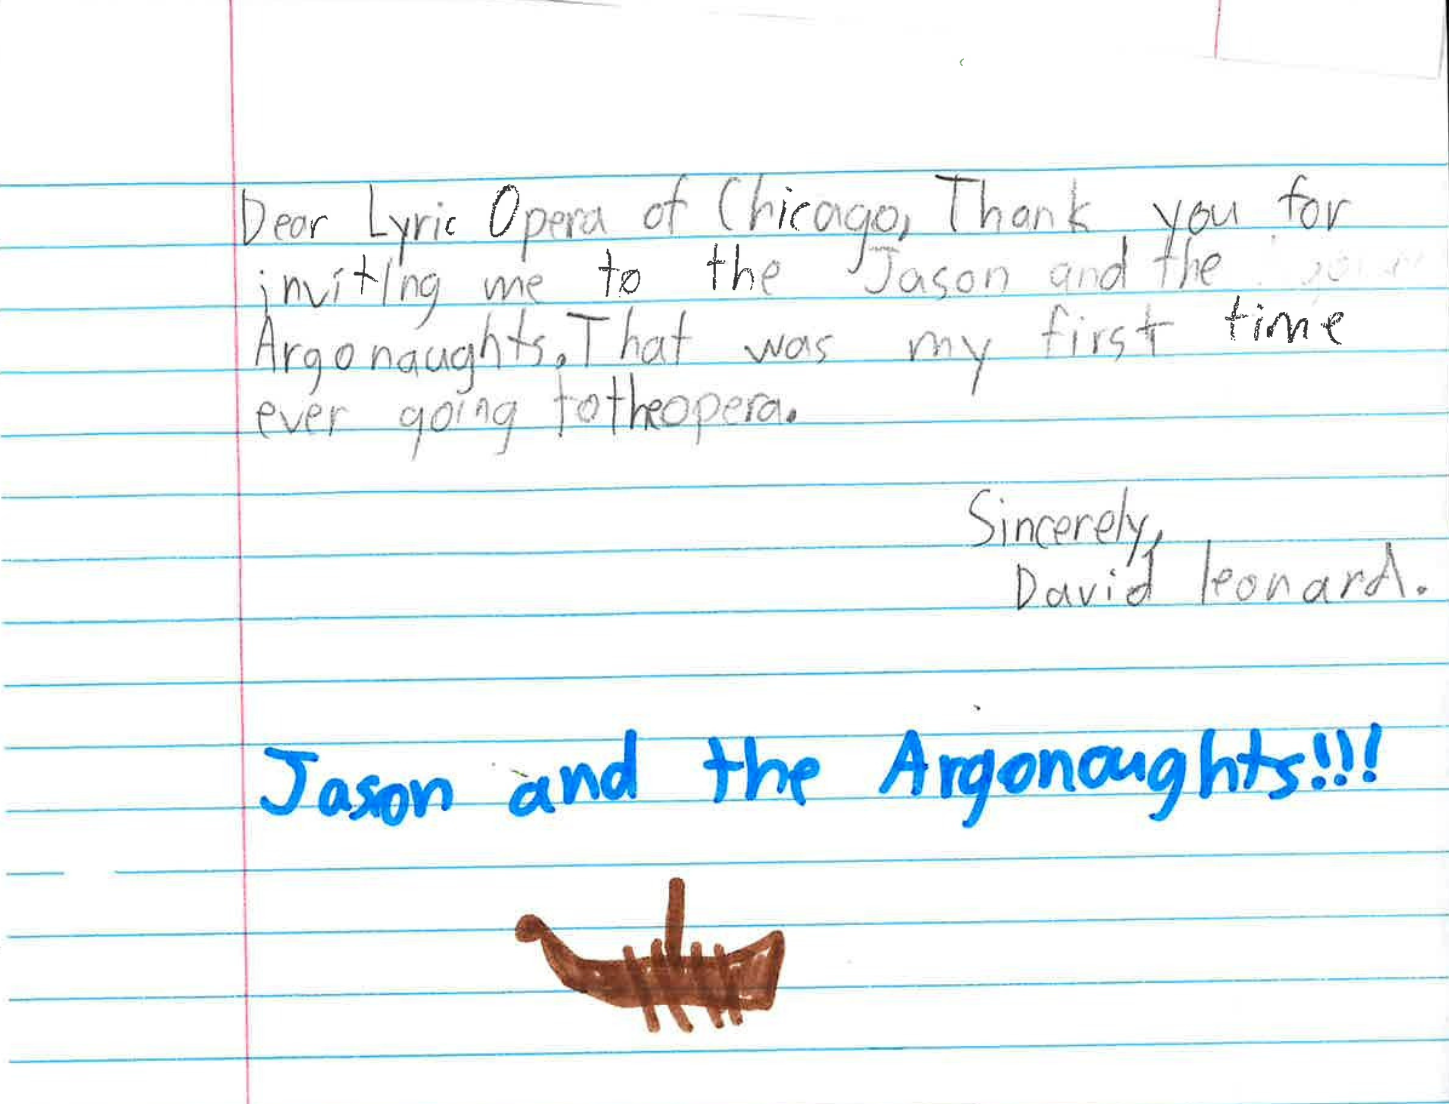 Dear Lyric Opera of Chicago, Thank you for
inviting me to the Jason and the
Argonaughts. That was my first time
ever going totheopera.
Sincerely,
David leonard.
Jason and the Argonoughts!!!